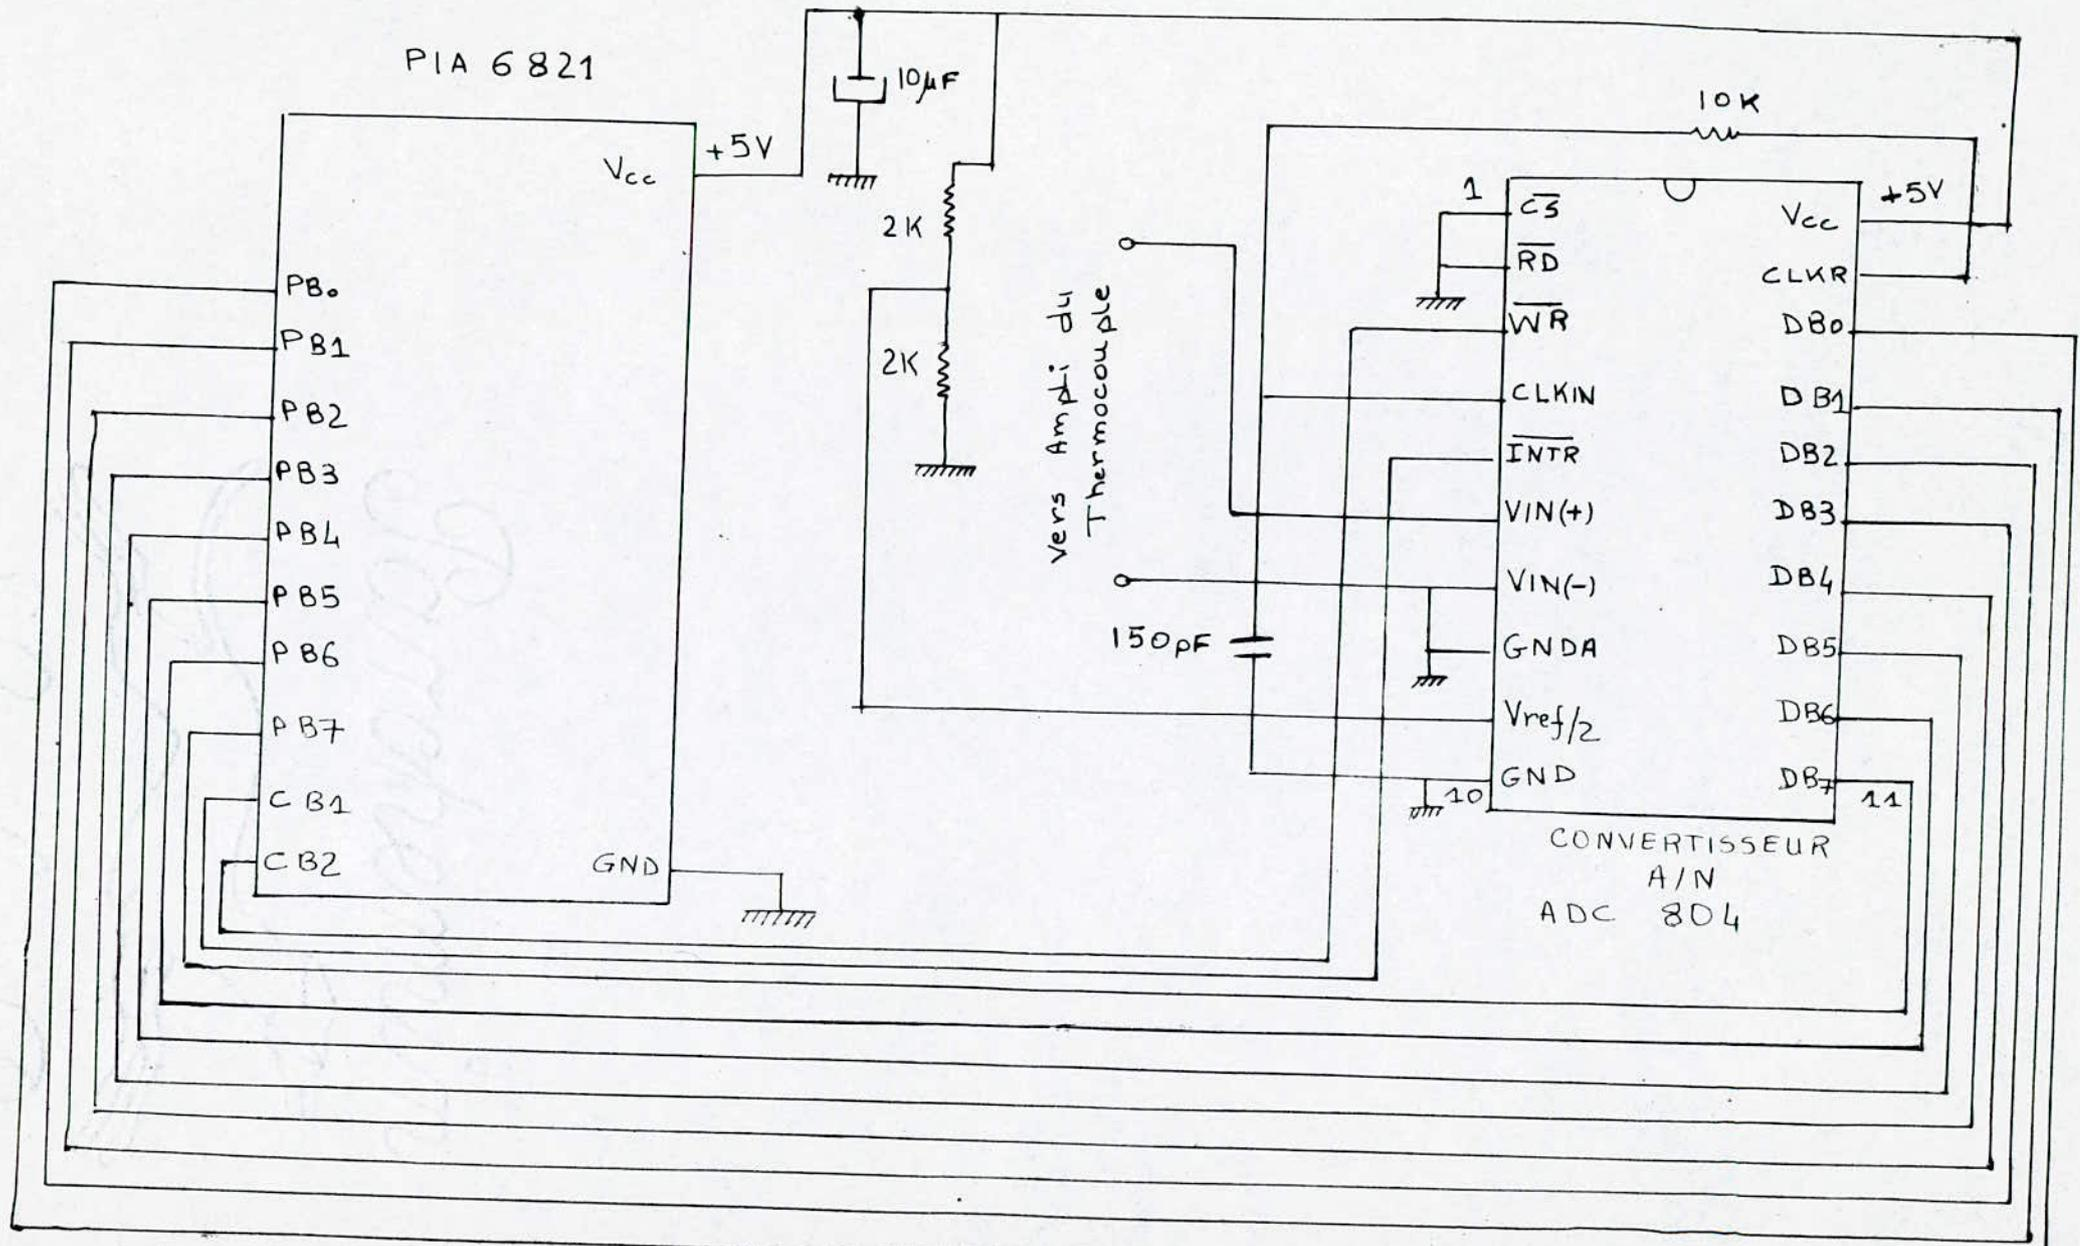 PIA 6821
Vcc
+5V
10µF
2K
2K
PB0
PB1
PB2
PB3
PB4
PB5
PB6
PB7
CB1
CB2
GND
Vers Ampli du
Thermocouple
150pF
10K
1
+5V
CS
RD
WR
CLKIN
INTR
VIN(+)
VIN(-)
GNDA
Vref/2
GND
10
Vcc
CLKR
DB0
DB1
DB2
DB3
DB4
DB5
DB6
DB7
11
CONVERTISSEUR
A/N
ADC 804